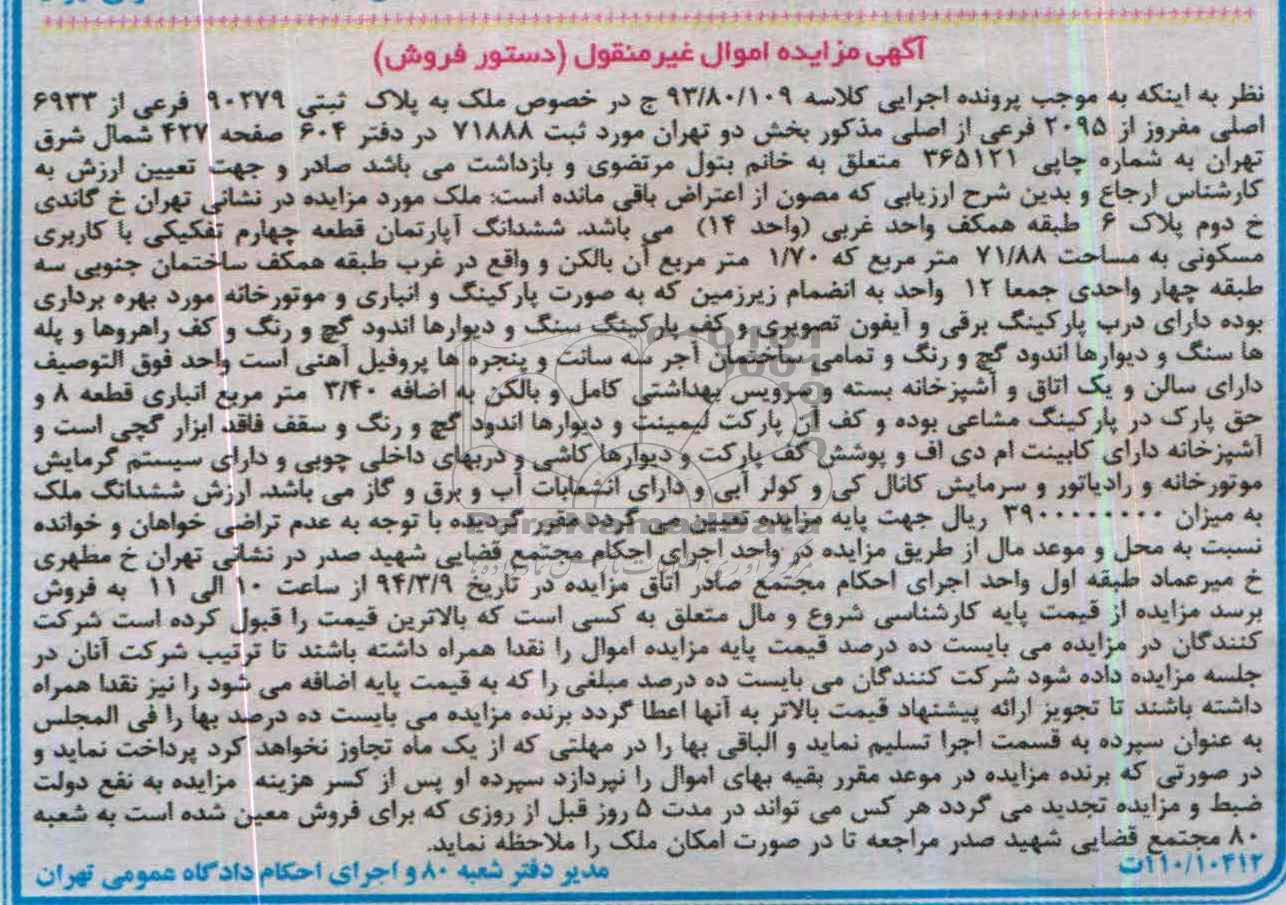 آگهی مزایده اموال غیرمنقول (دستور فروش)
نظر به اینکه به موجب پرونده اجرایی کلاسه ۹۳/۸۰/۱۰۹ ج در خصوص ملک به پلاک ثبتی ۹۰۲۷۹ فرعی از ۶۹۳۳
اصلی مفروز از ۲۰۹۵ فرعی از اصلی مذکور بخش دو تهران مورد ثبت ۷۱۸۸۸ در دفتر ۶۰۴ صفحه ۴۲۷ شمال شرق
تهران به شماره چاپی ۳۶۵۱۲۱ متعلق به خانم بتول مرتضوی و بازداشت می باشد صادر و جهت تعیین ارزش به
کارشناس ارجاع و بدین شرح ارزیابی که مصون از اعتراض باقی مانده است: ملک مورد مزایده در نشانی تهران خ گاندی
خ دوم پلاک ۶ طبقه همکف واحد غربی (واحد ۱۴) می باشد. ششدانگ آپارتمان قطعه چهارم تفکیکی با کاربری
مسکونی به مساحت ۷۱/۸۸ متر مربع که ۱/۷۰ متر مربع آن بالکن و واقع در غرب طبقه همکف ساختمان جنوبی سه
طبقه چهار واحدی جمعا ۱۲ واحد به انضمام زیرزمین که به صورت پارکینگ و انباری و موتورخانه مورد بهره برداری
بوده دارای درب پارکینگ برقی و آیفون تصویری و کف پارکینگ سنگ و دیوارها اندود گچ و رنگ و کف راهروها و پله
ها سنگ و دیوارها اندود گچ و رنگ و تمامی ساختمان آجر سه سانت و پنجره ها پروفیل آهنی است واحد فوق التوصیف
دارای سالن و یک اتاق و آشپزخانه بسته و سرویس بهداشتی کامل و بالکن به اضافه ۳/۴۰ متر مربع انباری قطعه ۸ و
حق پارک در پارکینگ مشاعی بوده و کف آن پارکت لیمینت و دیوارها اندود گچ و رنگ و سقف فاقد ابزار گچی است و
آشپزخانه دارای کابینت ام دی اف و پوشش کف پارکت و دیوارها کاشی و دربهای داخلی چوبی و دارای سیستم گرمایش
موتورخانه و رادیاتور و سرمایش کانال کی و کولر آبی و دارای انشعابات آب و برق و گاز می باشد. ارزش ششدانگ ملک
به میزان ۳۹۰۰۰۰۰۰۰۰ ریال جهت پایه مزایده تعیین می گردد مقرر گردیده با توجه به عدم تراضی خواهان و خوانده
نسبت به محل و موعد مال از طریق مزایده در واحد اجرای احکام مجتمع قضایی شهید صدر در نشانی تهران خ مطهری
خ میرعماد طبقه اول واحد اجرای احکام مجتمع صادر اتاق مزایده در تاریخ ۹۴/۳/۹ از ساعت ۱۰ الی ۱۱ به فروش
برسد مزایده از قیمت پایه کارشناسی شروع و مال متعلق به کسی است که بالاترین قیمت را قبول کرده است شرکت
کنندگان در مزایده می بایست ده درصد قیمت پایه مزایده اموال را نقدا همراه داشته باشند تا ترتیب شرکت آنان در
جلسه مزایده داده شود شرکت کنندگان می بایست ده درصد مبلغی را که به قیمت پایه اضافه می شود را نیز نقدا همراه
داشته باشند تا تجویز ارائه پیشنهاد قیمت بالاتر به آنها اعطا گردد برنده مزایده می بایست ده درصد بها را فی المجلس
به عنوان سپرده به قسمت اجرا تسلیم نماید و الباقی بها را در مهلتی که از یک ماه تجاوز نخواهد کرد پرداخت نماید و
در صورتی که برنده مزایده در موعد مقرر بقیه بهای اموال را نپردازد سپرده او پس از کسر هزینه مزایده به نفع دولت
ضبط و مزایده تجدید می گردد هر کس می تواند در مدت ۵ روز قبل از روزی که برای فروش معین شده است به شعبه
۸۰ مجتمع قضایی شهید صدر مراجعه تا در صورت امکان ملک را ملاحظه نماید.
۱۱۰/۱۰۴۱۲ت
مدیر دفتر شعبه ۸۰ و اجرای احکام دادگاه عمومی تهران
ParsNamadData